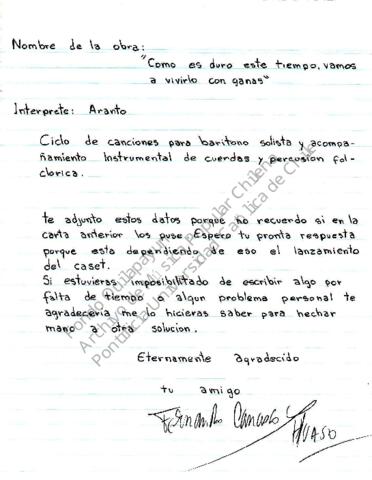 Nombre de la obra:
"Como es duro este tiempo, vamos
a vivirlo con ganas"
Interprete: Aranto
Ciclo de canciones para baritono solista y acompa-
ñamiento Instrumental de cuerdas y percusion fol-
clorica.
te adjunto estos datos porque no recuerdo si en la
carta anterior los puse. Espero tu pronta respuesta
porque esta dependiendo de eso el lanzamiento
del caset.
Si estuvieras imposibilitado de escribir algo por
falta de tiempo o algun problema personal te
agradeceria me lo hicieras saber para hechar
mano a otra solucion.
Eternamente agradecido
tu amigo
Fernando Carrasco
HUASO
Fondo Quilapayún
Archivo de Música Popular Chilena
Pontificia Universidad Católica de Chile